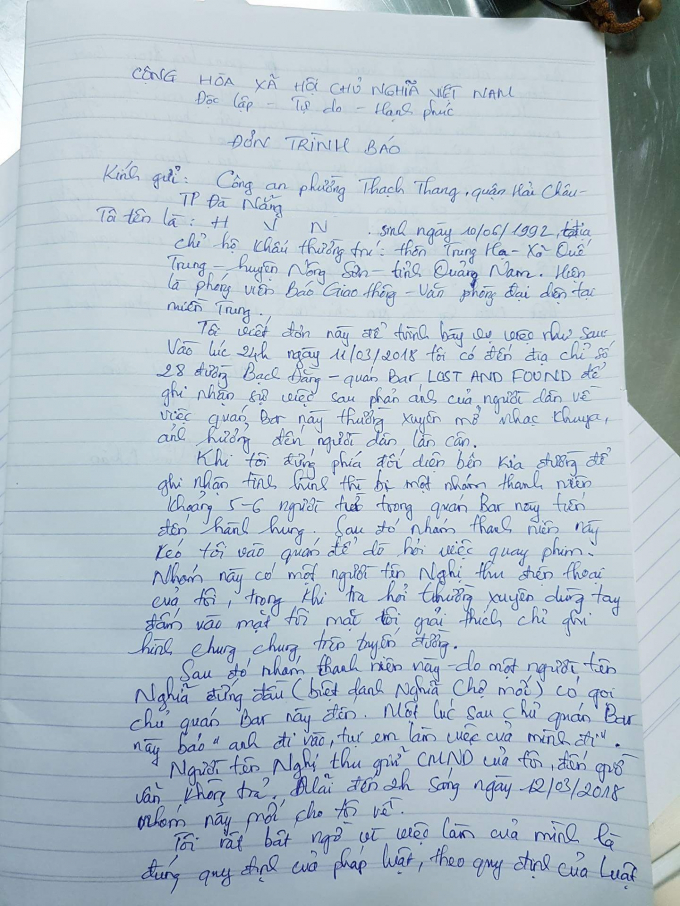 CỘNG HÒA XÃ HỘI CHỦ NGHĨA VIỆT NAM
Độc lập - Tự do - Hạnh phúc
ĐƠN TRÌNH BÁO
Kính gửi: Công an phường Thạch Thang, quận Hải Châu -
TP Đà Nẵng
Tôi tên là: H V N . sinh ngày 10/06/1992, địa
chỉ hộ khẩu thường trú: thôn Trung Hạ - Xã Quế
Trung - huyện Nông Sơn - tỉnh Quảng Nam. Hiện
là phóng viên Báo Giao thông - Văn phòng đại diện tại
miền Trung.
Tôi viết đơn này để trình bày vụ việc như sau:
Vào lúc 24h ngày 11/03/2018 tôi có đến địa chỉ số
28 đường Bạch Đằng - quán Bar LOST AND FOUND để
ghi nhận sự việc sau phản ánh của người dân về
việc quán Bar này thường xuyên mở nhạc khuya,
ảnh hưởng đến người dân lân cận.
Khi tôi đứng phía đối diện bên kia đường để
ghi nhận tình hình thì bị một nhóm thanh niên
khoảng 5-6 người từ trong quán Bar này tiến
đến hành hung. Sau đó nhóm thanh niên này
kéo tôi vào quán để dò hỏi việc quay phim.
Nhóm này có một người tên Nghị thu điện thoại
của tôi, trong khi tra hỏi thường xuyên dùng tay
đấm vào mặt tôi mặc tôi giải thích chỉ ghi
hình chung chung trên tuyến đường.
Sau đó nhóm thanh niên này do một người tên
Nghĩa đứng đầu (biệt danh Nghĩa Chợ mới) có gọi
chủ quán Bar này đến. Một lúc sau chủ quán Bar
này bảo "anh đi vào, tụi em làm việc của mình đi".
Người tên Nghị thu giữ CMND của tôi, đến giờ
vẫn không trả. Mãi đến 2h sáng ngày 12/03/2018
nhóm này mới cho tôi về.
Tôi rất bất ngờ vì việc làm của mình là
đúng quy định của pháp luật, theo quy định của Luật